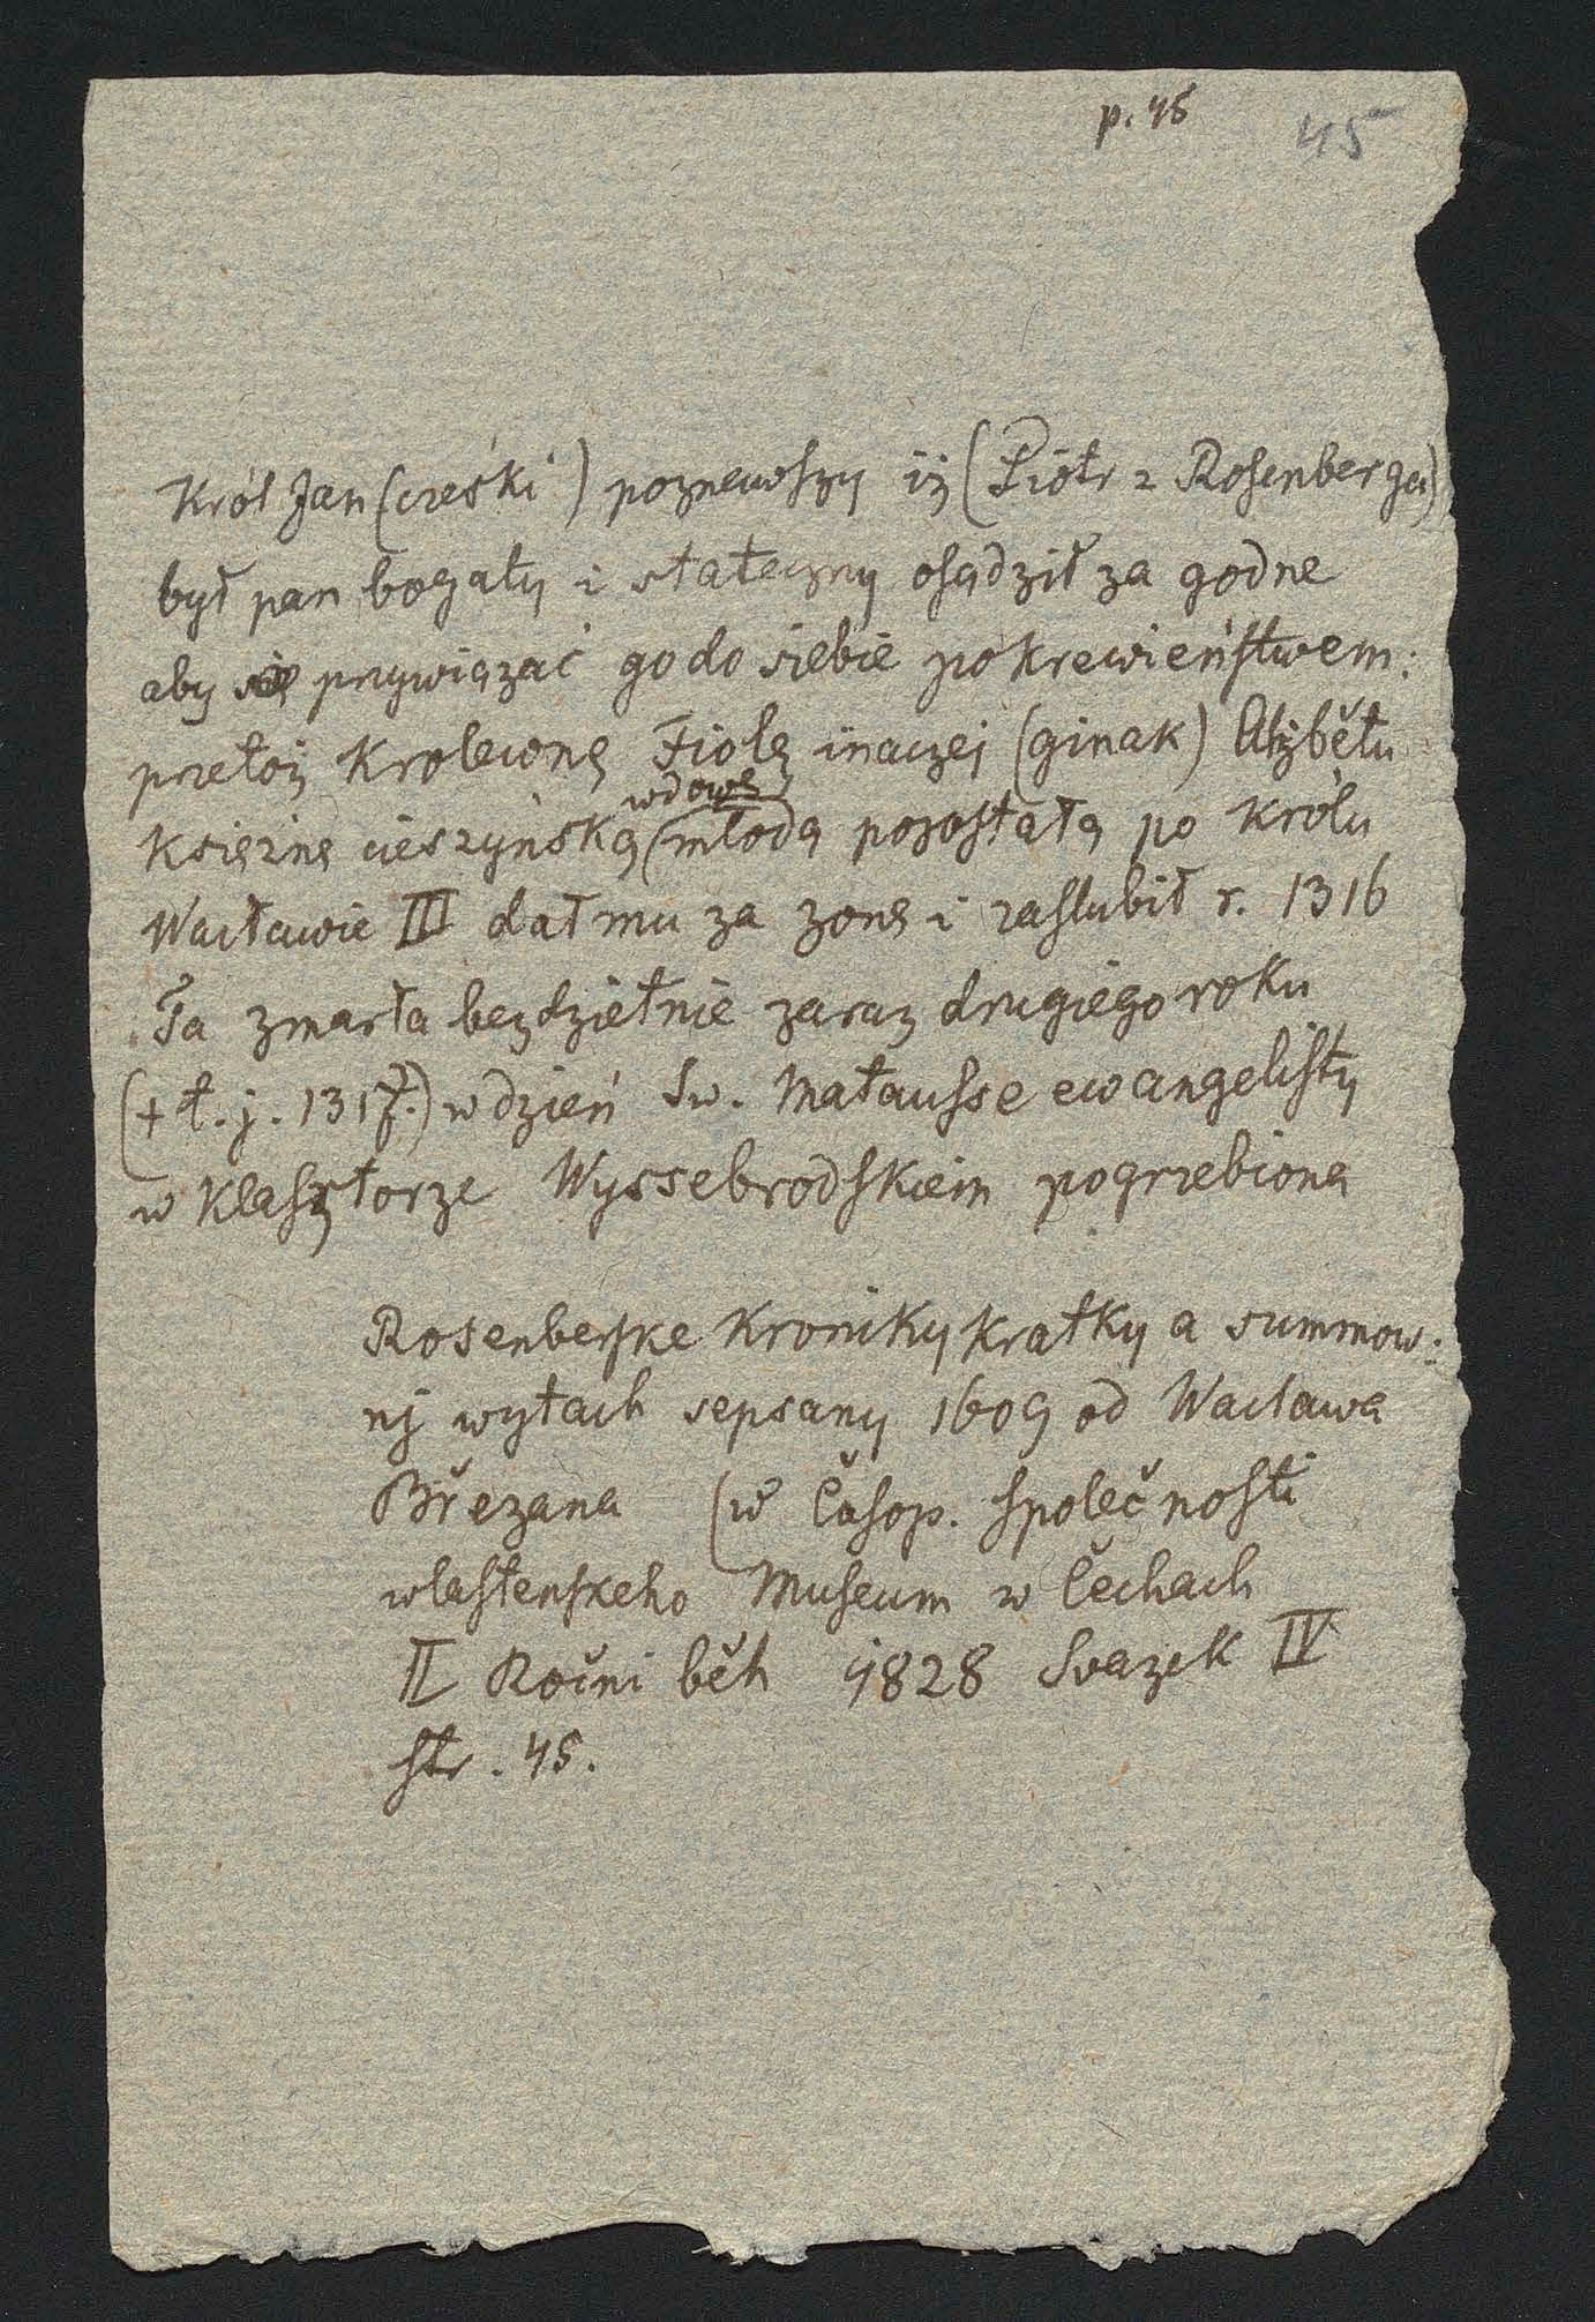 p. 45 45
Król Jan (czeski) poznawszy iż (Piotr z Rosenberga)
był pan bogaty i stateczny osądził za godne
aby się przywiązać go do siebie pokrewieństwem:
przetoż Krolewnę Fiolę inaczej (ginak) Alžbětu
wdowę
Księżnę cieszyńską (młodą pozostałą po królu
Wacławie III dał mu za żonę i zaslubił r. 1316
Ta zmarła bezdzietnie zaraz drugiego roku
(+ t. j. 1317.) w dzień Sw. Matausse ewangelisty
w Klasztorze Wyssebrodskiem pogrzebiona
Rosenberske Kroniky kratky a summow:
nj wytach sepsany 1609 od Wacława
Březana (w Časop. společnosti
wlastenskeho Museum w Čechach
II Ročni běh 1828 Svazek IV
str. 45.